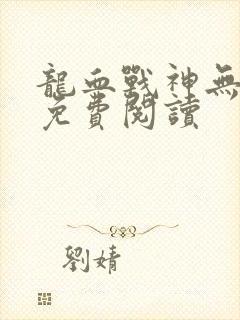 龍血戰神無
免費閱讀
劉婧